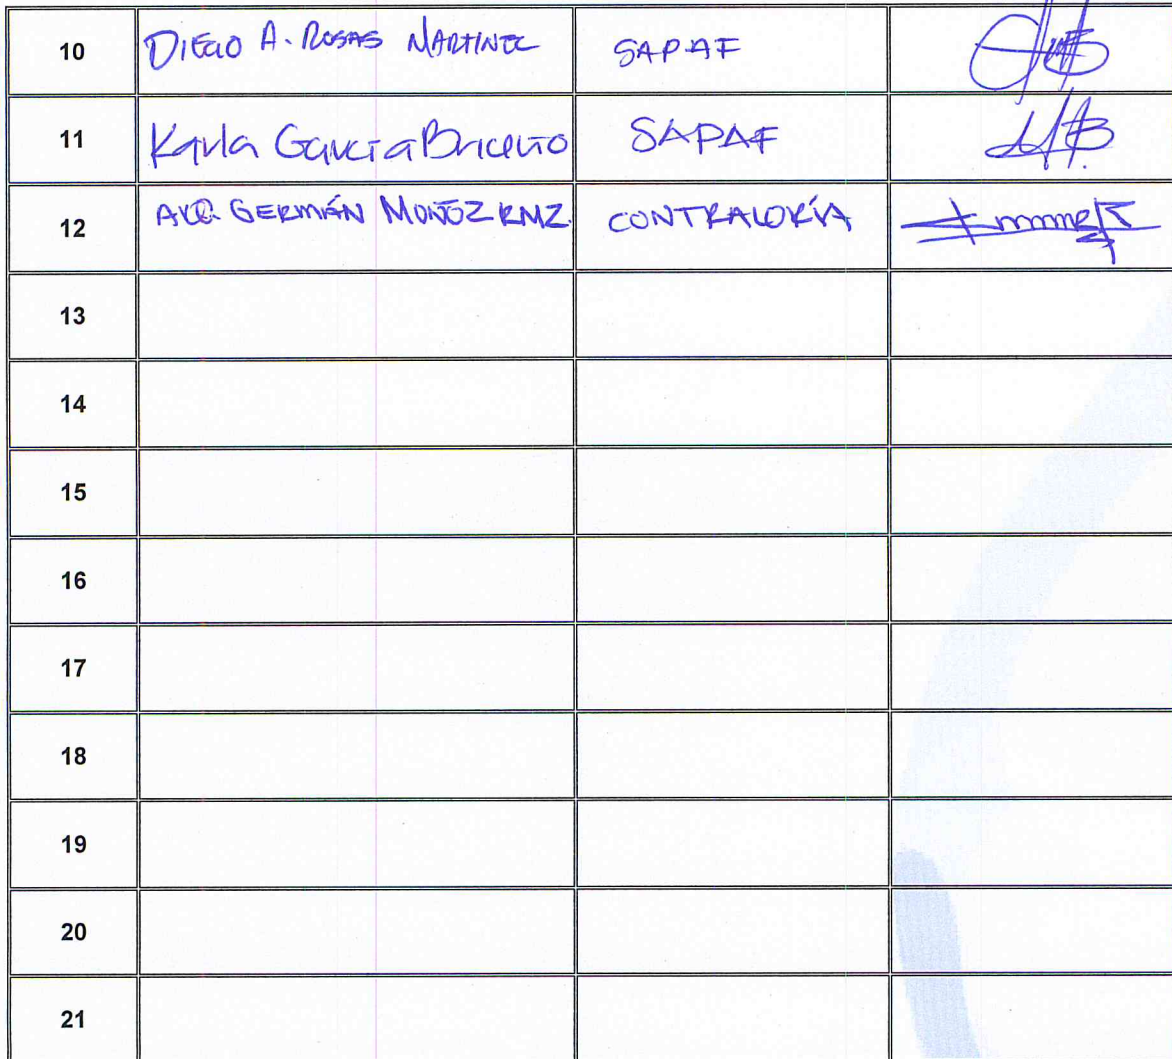 10 DIEGO A. ROSAS MARTINEZ SAPAF
11 Karla García Briceño SAPAF
12 GERMÁN MUÑOZ RMZ. CONTRALORÍA
13
14
15
16
17
18
19
20
21